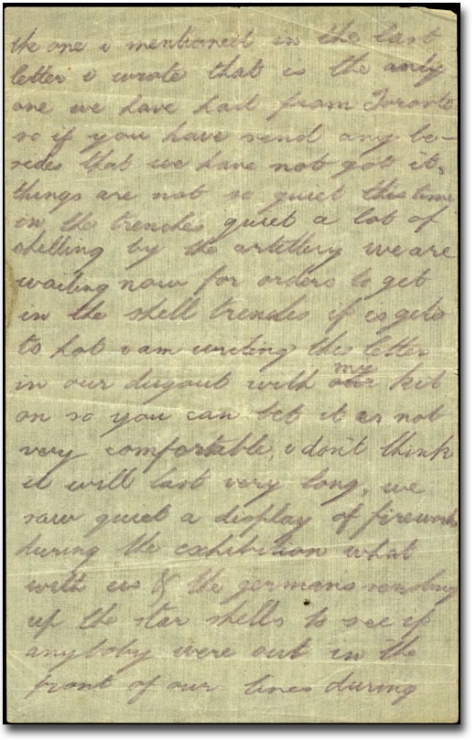 the one i mentioned in the last
letter i wrote that is the only
one we have had from Toronto
so if you have send any be-
sides that we have not got it.
things are not so quiet this time
in the trenches quiet a lot of
shelling by the artillery we are
waiting now for orders to get
in the shell trenches if is gets
to hot i am writing this letter
in our dugout with my our kit
on so you can bet it is not
very comfortable, i don't think
it will last very long, we
saw quiet a display of fireworks
during the exhibition what
with us & the germans sending
up the star shells to see if
anyboby were out in the
front of our lines during